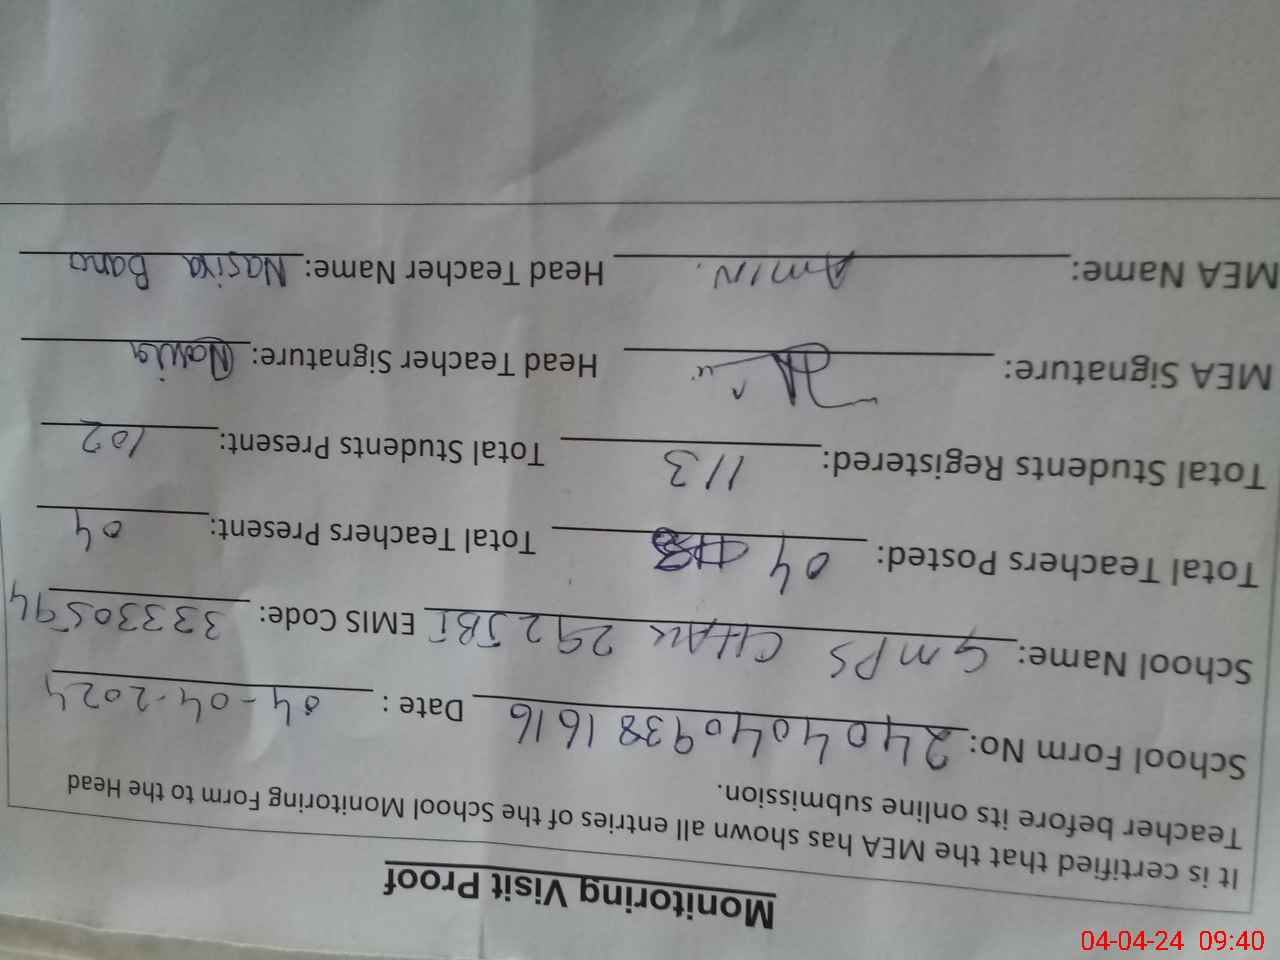 Monitoring Visit Proof
It is certified that the MEA has shown all entries of the School Monitoring Form to the Head
Teacher before its online submission.
School Form No: 2404040938 1616 Date : 04-04-2024
School Name: GMPS CHAK 292 JBI EMIS Code: 33330594
Total Teachers Posted: 04 Total Teachers Present: 04
Total Students Registered: 113 Total Students Present: 102
MEA Signature: Head Teacher Signature:
MEA Name: AMIN. Head Teacher Name: Nasira Bano
04-04-24 09:40